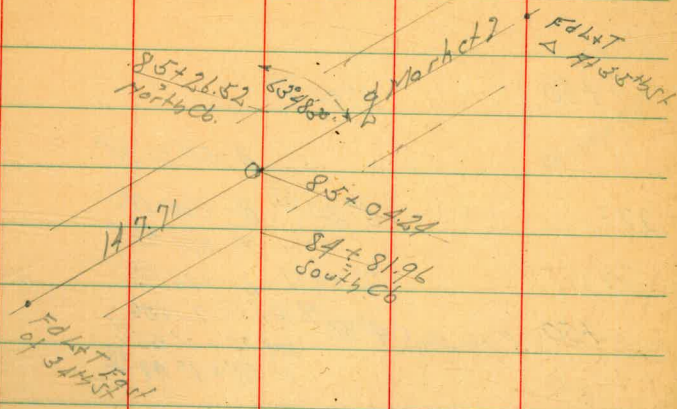 Fd L+T
△ At 35th St
85+26.52
North Cb.
63°48'30"
℄ Market
85+04.24
84+81.96
South Cb
147.71
Fd L+T East
of 34th St